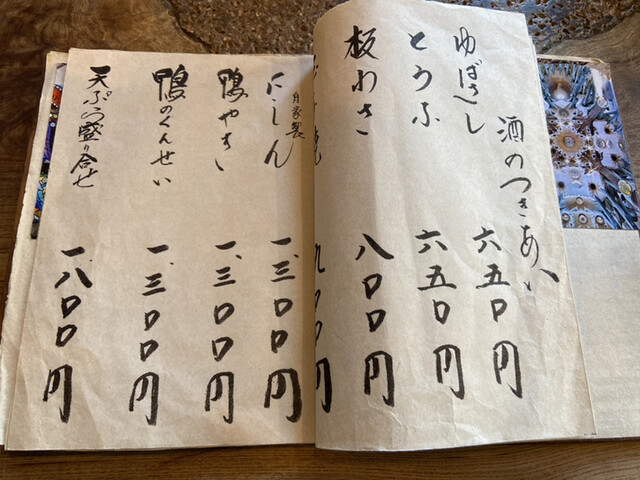 酒のつきあい
ゆばさし 六五〇円
とうふ 六五〇円
板わさ 八〇〇円
焼 九〇〇円
自家製
にしん 一、三〇〇円
鴨やき 一、三〇〇円
鴨のくんせい 一、三〇〇円
天ぷら盛り合せ 一、八〇〇円